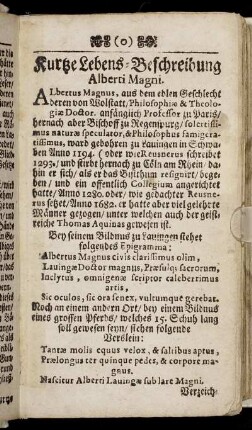 (0)
Kurtze Lebens-Beschreibung
Alberti Magni.
ALbertus Magnus, aus dem edlen Geschlecht
deren von Wolstatt, Philosophiæ & Theolo-
giæ Doctor. anfänglich Professor zu Paris/
hernach aber Bischoff zu Regenspurg/ solertissi-
mus naturæ speculator, & Philosophus famigera-
tissimus, ward gebohren zu Lauingen in Schwa-
ben Anno 1194. (oder wie Reusnerus schreibet
1293. und stirbt hernach zu Cöln am Rhein da-
hin er sich/ als er das Bisthum resignirt/ bege-
ben/ und ein öffentlich Collegium angerichtet
hatte/ Anno 1280. oder/ wie gedachter Reusne-
rus setzet/ Anno 1682. er hatte aber viel gelehrte
Männer gezogen/ unter welchen auch der geist-
reiche Thomas Aquinas gewesen ist.
Bey seinem Bildnus zu Lauingen stehet
folgendes Epigramma:
Albertus Magnus civis clarissimus olim,
Lauingæ Doctor magnus, Præsulq; sacrorum,
Inclytus, omnigenæ scriptor celeberrimus
artis,
Sic oculos, sic ora senex, vultumque gerebat.
Noch an einem andern Ort/ bey einem Bildnus
eines grossen Pferds/ welches 15. Schuh lang
soll gewesen seyn/ stehen folgende
Verslein:
Tantæ molis equus velox, & saltibus aptus,
Prælongus ter quinque pedes, & corpore ma-
gnus.
Nascitur Alberti Lauingæ sub lare Magni.
Verzeich-